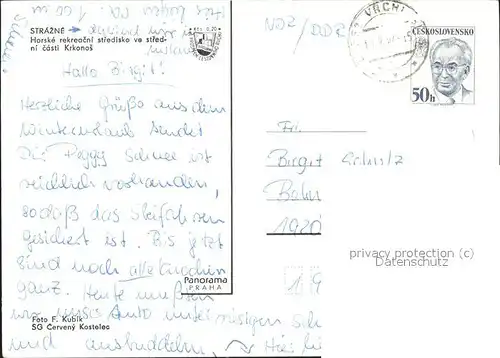 Schnee.
STRÁŽNÉ → da sind wir
Horské rekreační středisko ve střed-
ní části Krkonoš
Hallo Birgit!
Herzliche Grüße aus dem
Winterurlaub sendet
Dir Peggy Schnee ist
reichlich vorhanden,
sodaß das Skifahren
gesichert ist. Bis jetzt
sind noch alle Knochen
ganz. Heute mußten
wir unser Auto unter riesigen Sch
und ausbuddeln,
Hier li
Panorama
PRAHA
Foto F. Kubík
SG Červený Kostelec
NDR/DDR
VRCHL
ČESKOSLOVENSKO
50h
Fr.
Birgit Schulz
Bahn
1920
privacy protection (c)
Datenschutz
1 9